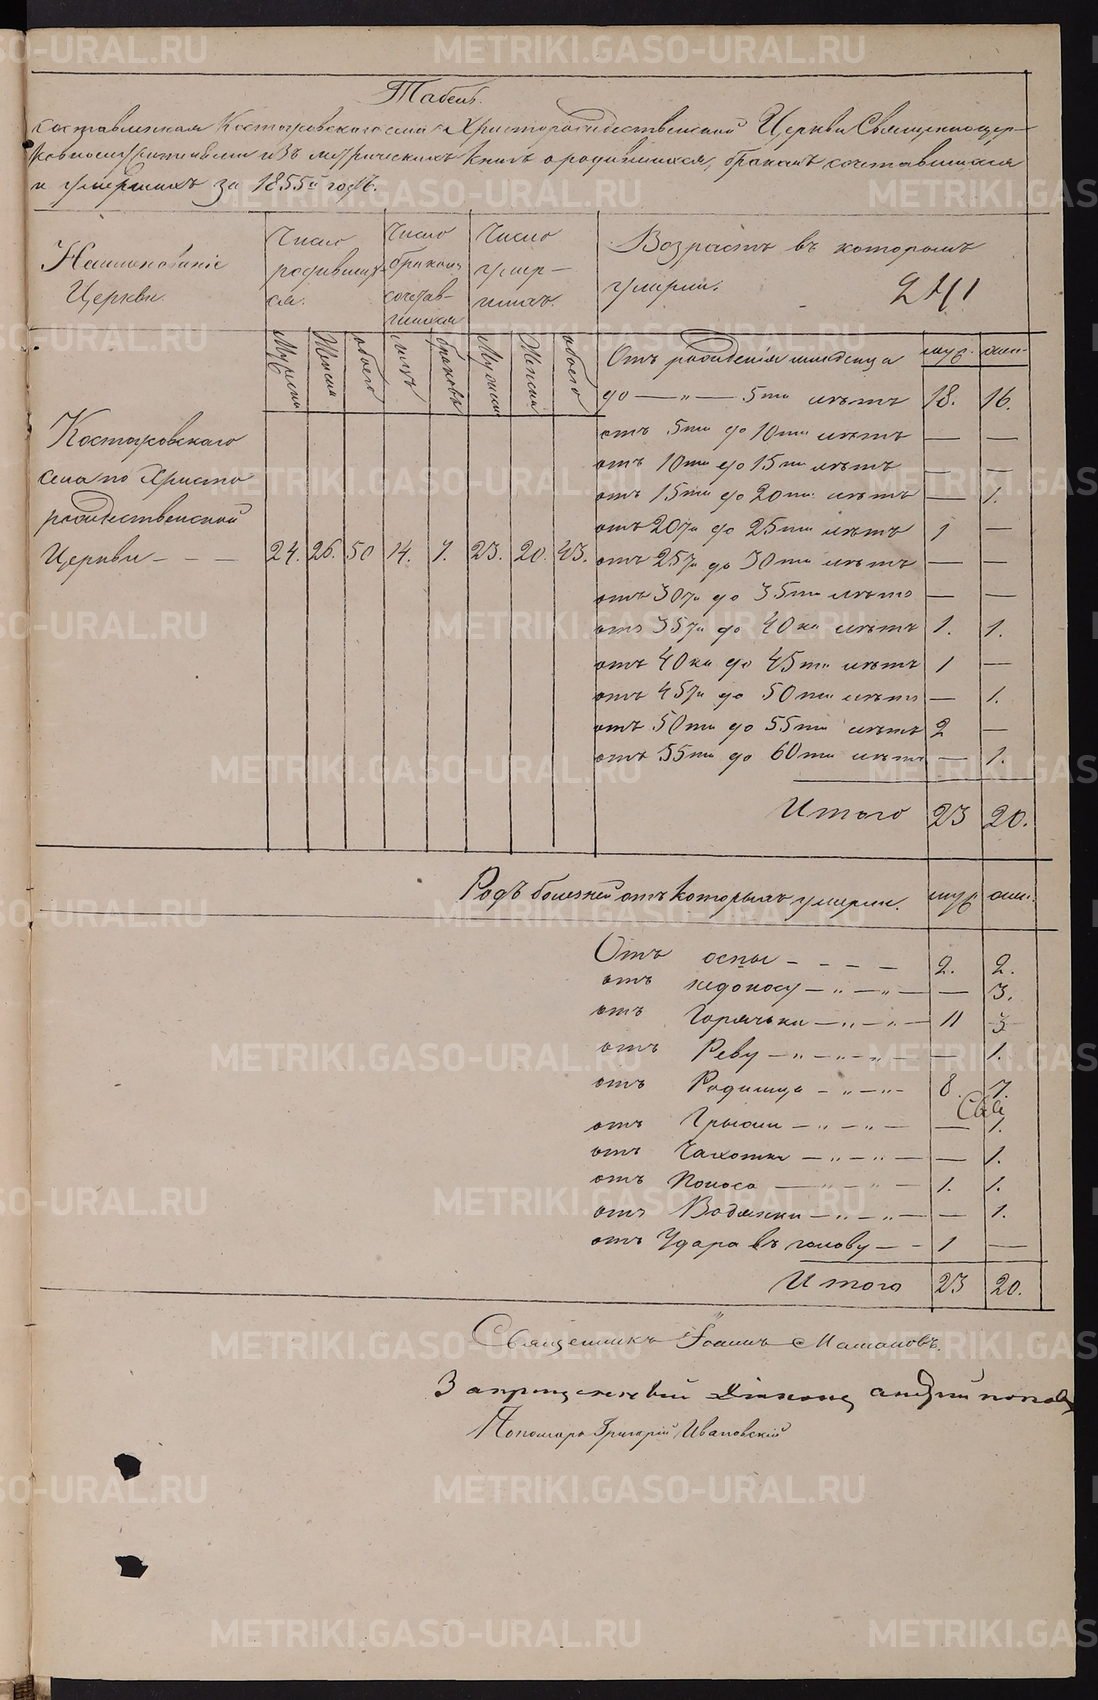 Табель.
составленная Костоусовскаго села Христорождественской Церкви Священноцер-
ковнослужителями изъ метрическихъ книгъ о родившихся, бракомъ сочетавшихся
и умершихъ за 1855й годъ.
Наименованіе Церкви.
Число родившихся.
Число бракомъ сочетавшихся
Число умершихъ.
Возрастъ въ которомъ умерли.
241
Мужска Женска обоего лицъ браковъ Мужска Женска обоего
Костоусовскаго
села по Христо
рождественской
Церкви — — 24. 26. 50 14. 7. 23. 20. 43.
Отъ рожденія младенца муж. жен.
до — „ — 5ти лѣтъ 18. 16.
отъ 5ти до 10ти лѣтъ — —
отъ 10ти до 15ти лѣтъ — —
отъ 15ти до 20ти лѣтъ — 1.
отъ 20ти до 25ти лѣтъ 1 —
отъ 25ти до 30ти лѣтъ — —
отъ 30ти до 35ти лѣтъ — —
отъ 35ти до 40ка лѣтъ 1. 1.
отъ 40ка до 45ти лѣтъ 1 —
отъ 45ти до 50ти лѣтъ — 1.
отъ 50ти до 55ти лѣтъ 2 —
отъ 55ти до 60ти лѣтъ — 1.
Итого 23 20.
Родъ болезней отъ которыхъ умерли. муж. жен.
Отъ оспы — — — — 2. 2.
отъ недоносу — „ — „ — — 3.
отъ Горячьки — „ — „ — 11 3
отъ Реву — „ — „ — „ — — 1.
отъ Родимца — „ — „ — 8. 7.
отъ Грыжи — „ — „ — — 1.
отъ Чахотки — „ — „ — — 1.
отъ Поноса — „ — „ — 1. 1.
отъ Водянки — „ — „ — — 1.
отъ Удара въ голову — — 1 —
Итого 23 20.
Священникъ Іоаннъ Мамановъ.
Запрещенный Діаконъ андрей попов
Пономарь Григорій Ивановскій
METRIKI.GASO-URAL.RU